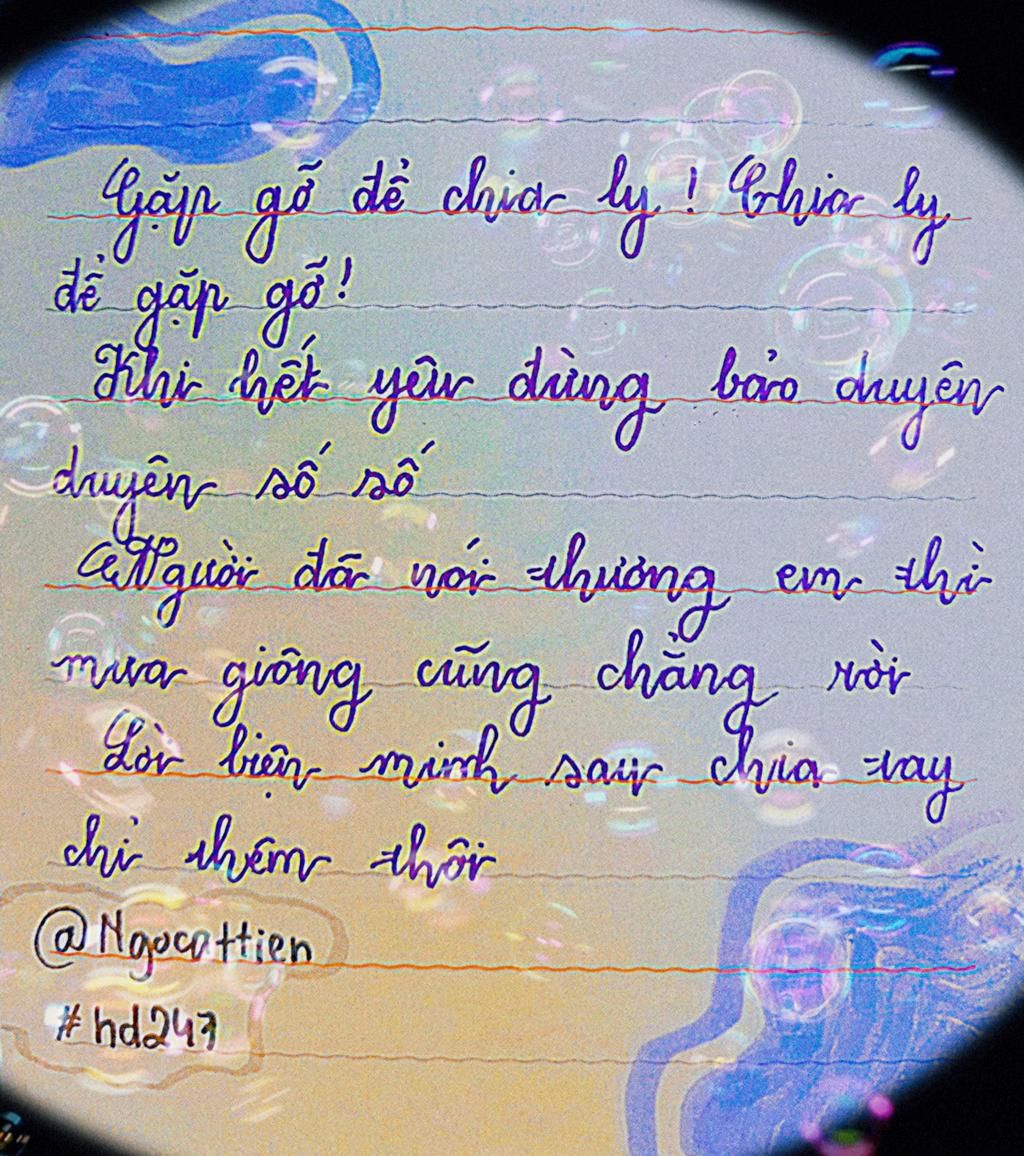 Gặp gỡ để chia ly! Chia ly
để gặp gỡ!
Khi hết yêu đừng bảo duyên
duyên số số
Người đã nói thương em thì
mưa giông cũng chẳng rời
Lời biện minh sau chia tay
chỉ thêm thôi
@Ngocattien
#hd247